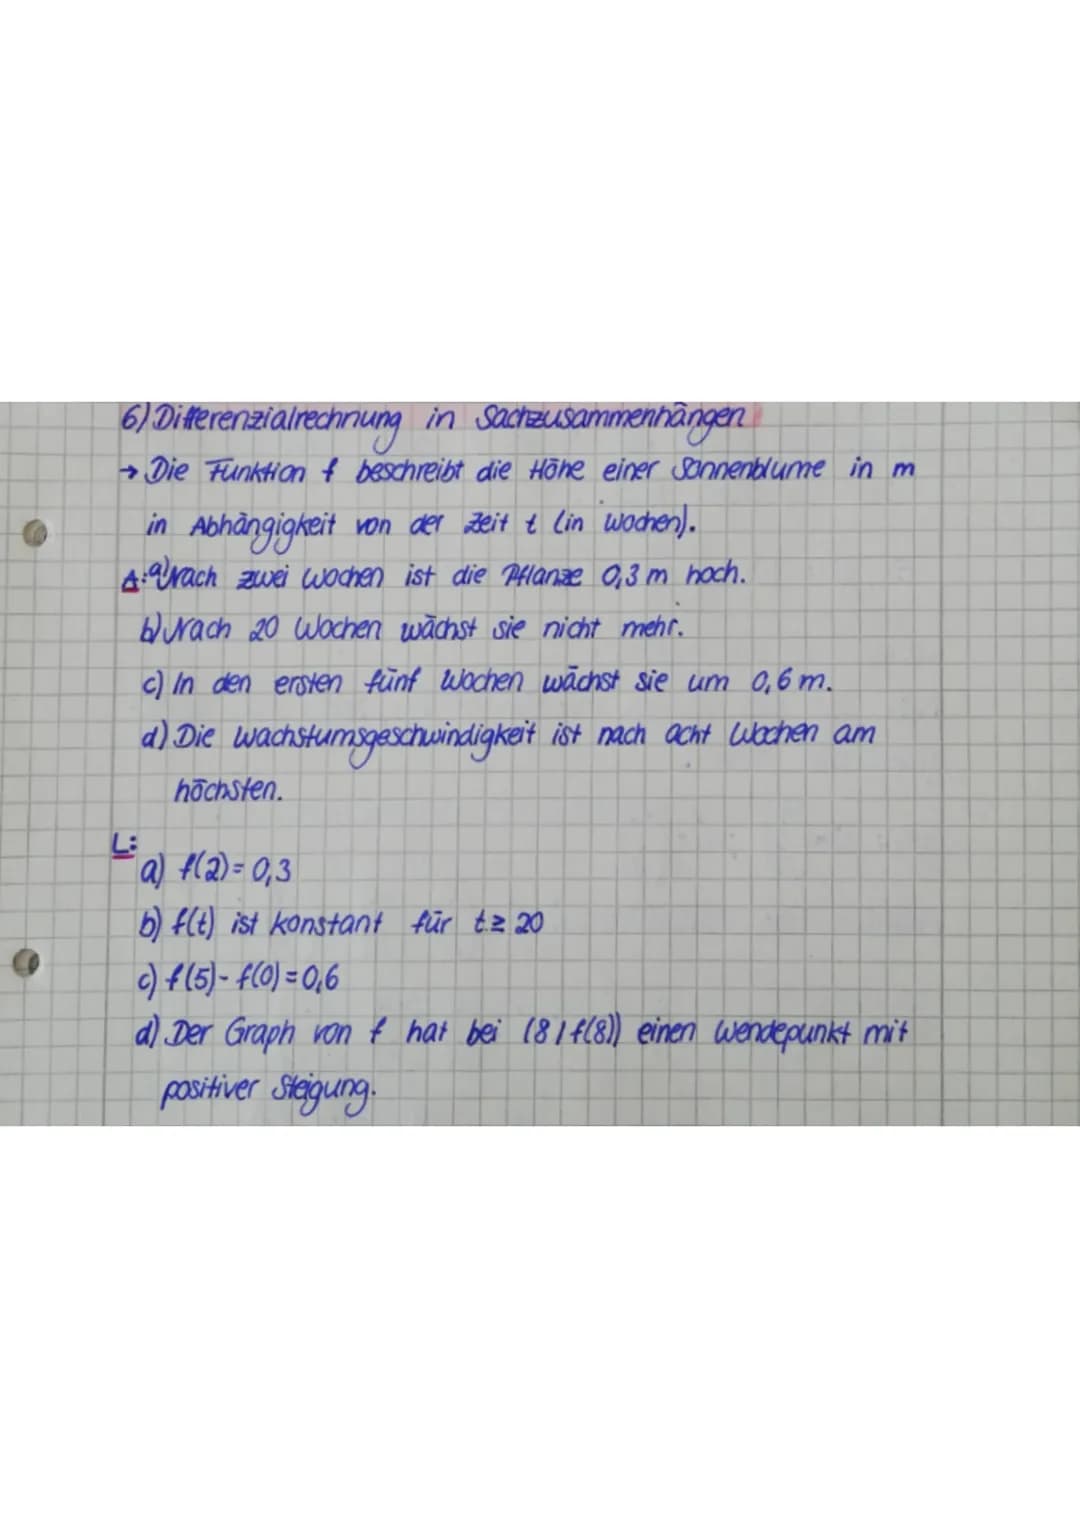 6) Differenzialrechnung in Sachzusammenhängen
→ Die Funktion f beschreibt die Höhe einer Sonnenblume in m
in Abhängigkeit von der Zeit t (in Wochen).
A: a) Nach zwei Wochen ist die Pflanze 0,3 m hoch.
b) Nach 20 Wochen wächst sie nicht mehr.
c) In den ersten fünf Wochen wächst sie um 0,6 m.
d) Die Wachstumsgeschwindigkeit ist nach acht Wochen am
höchsten.
L:
a) f(2) = 0,3
b) f(t) ist konstant für t ≥ 20
c) f(5) - f(0) = 0,6
d) Der Graph von f hat bei (8 / f(8)) einen Wendepunkt mit
positiver Steigung.